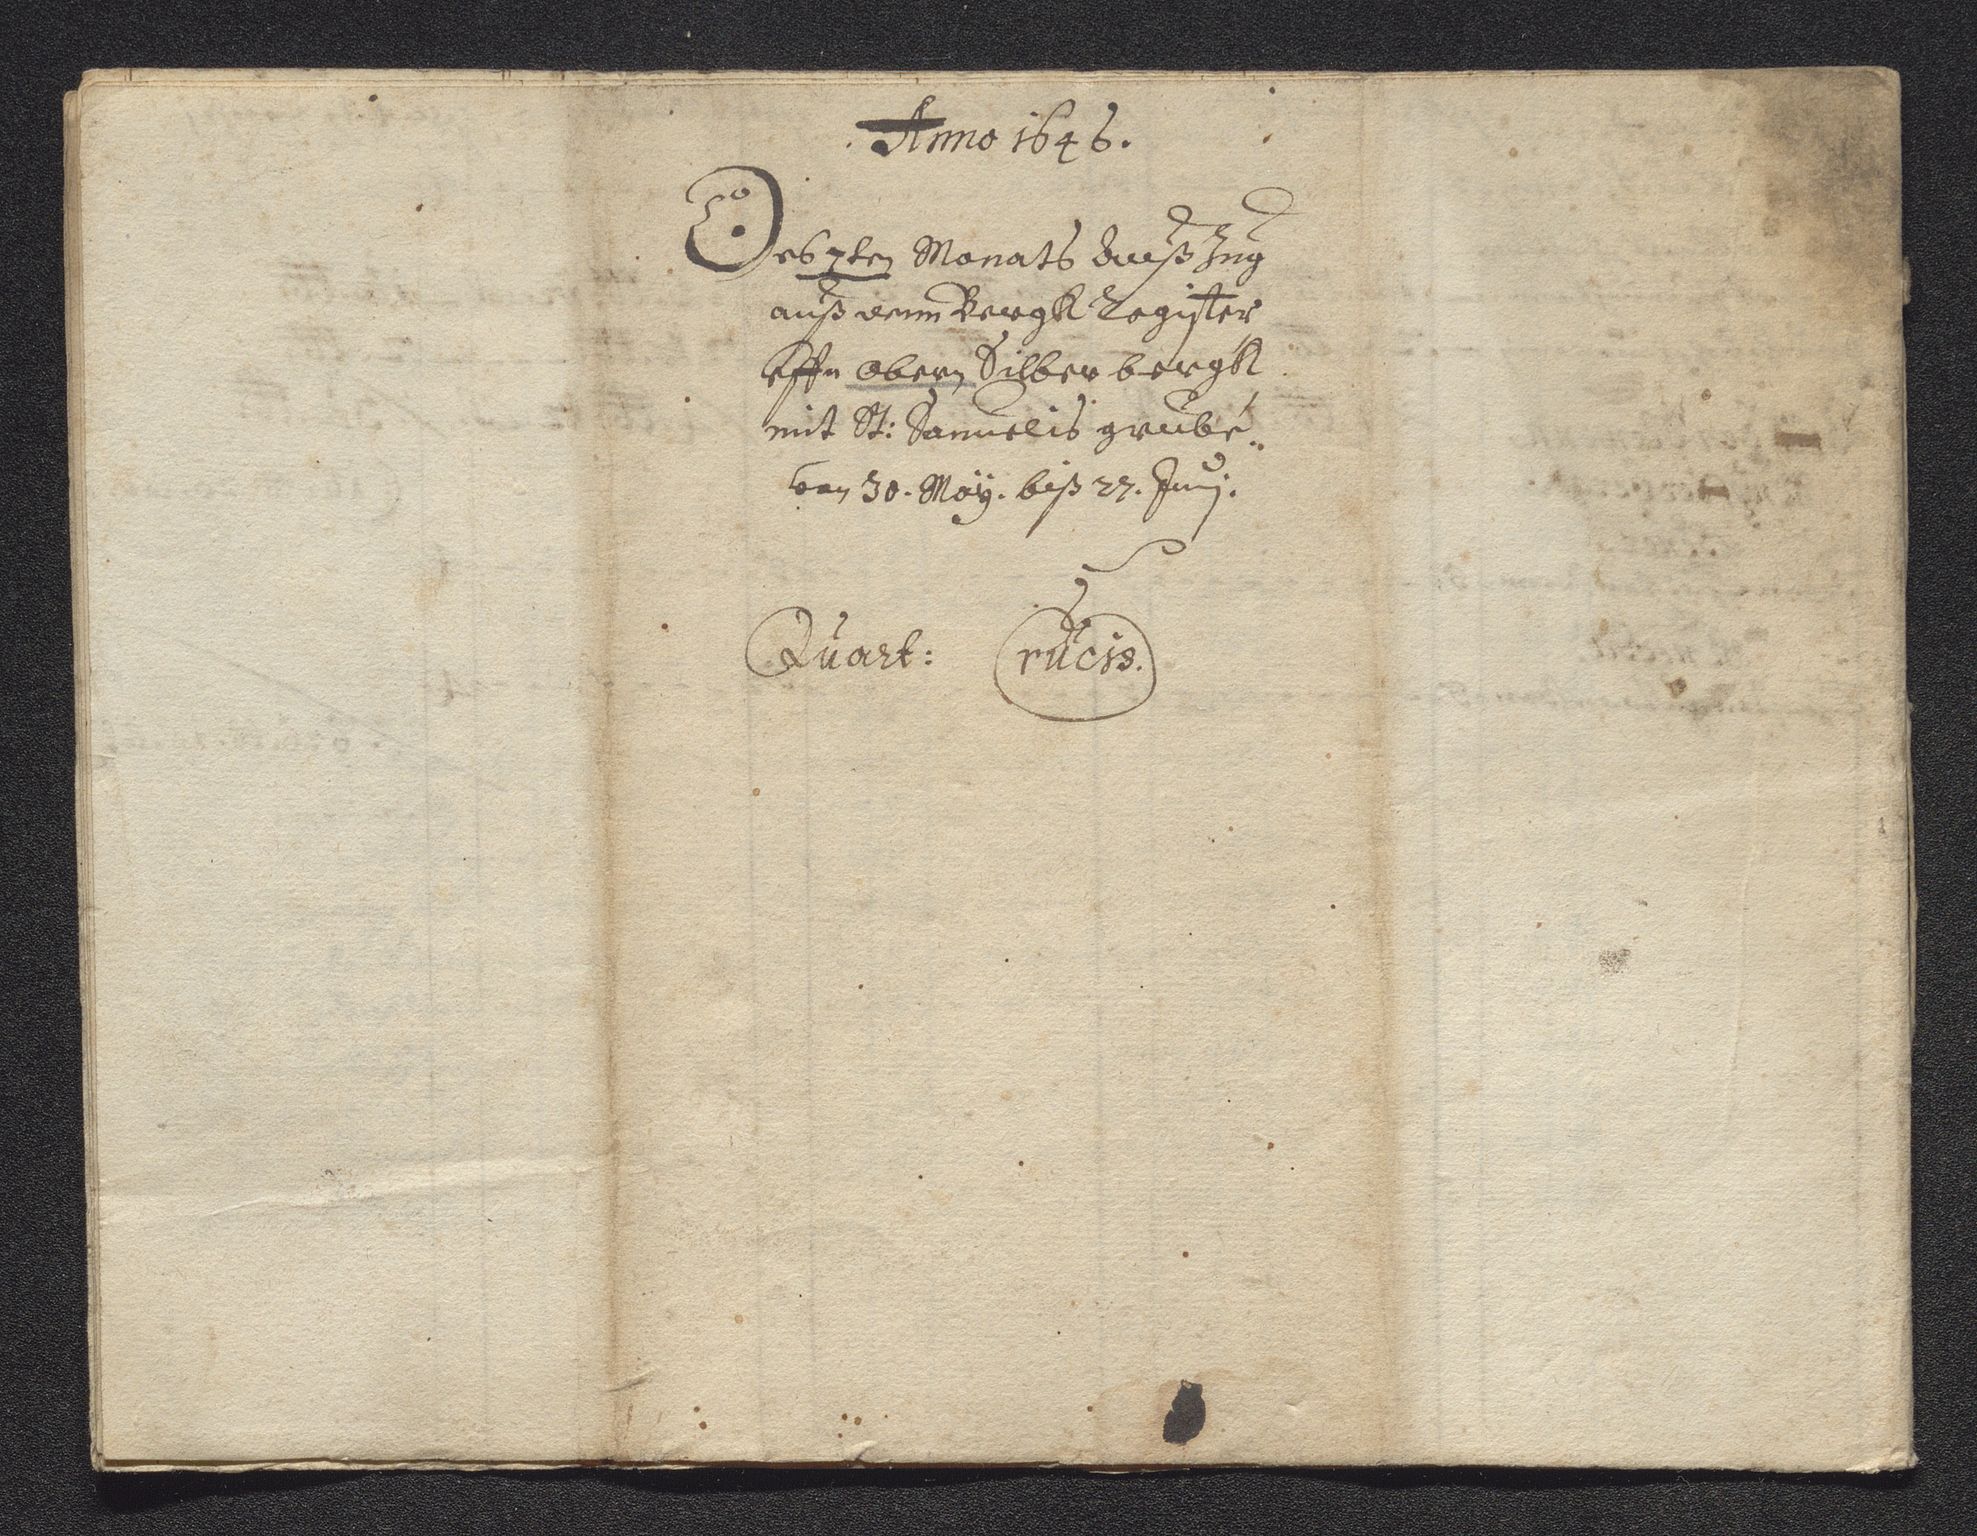 Anno 1646.
Des 7ten Monats Außzug
auß dem Bergk Register
Effn obern Silber bergk
mit St: Samuelis grube
von 30. May. biß 27. Junj.
Quart: Crucis.